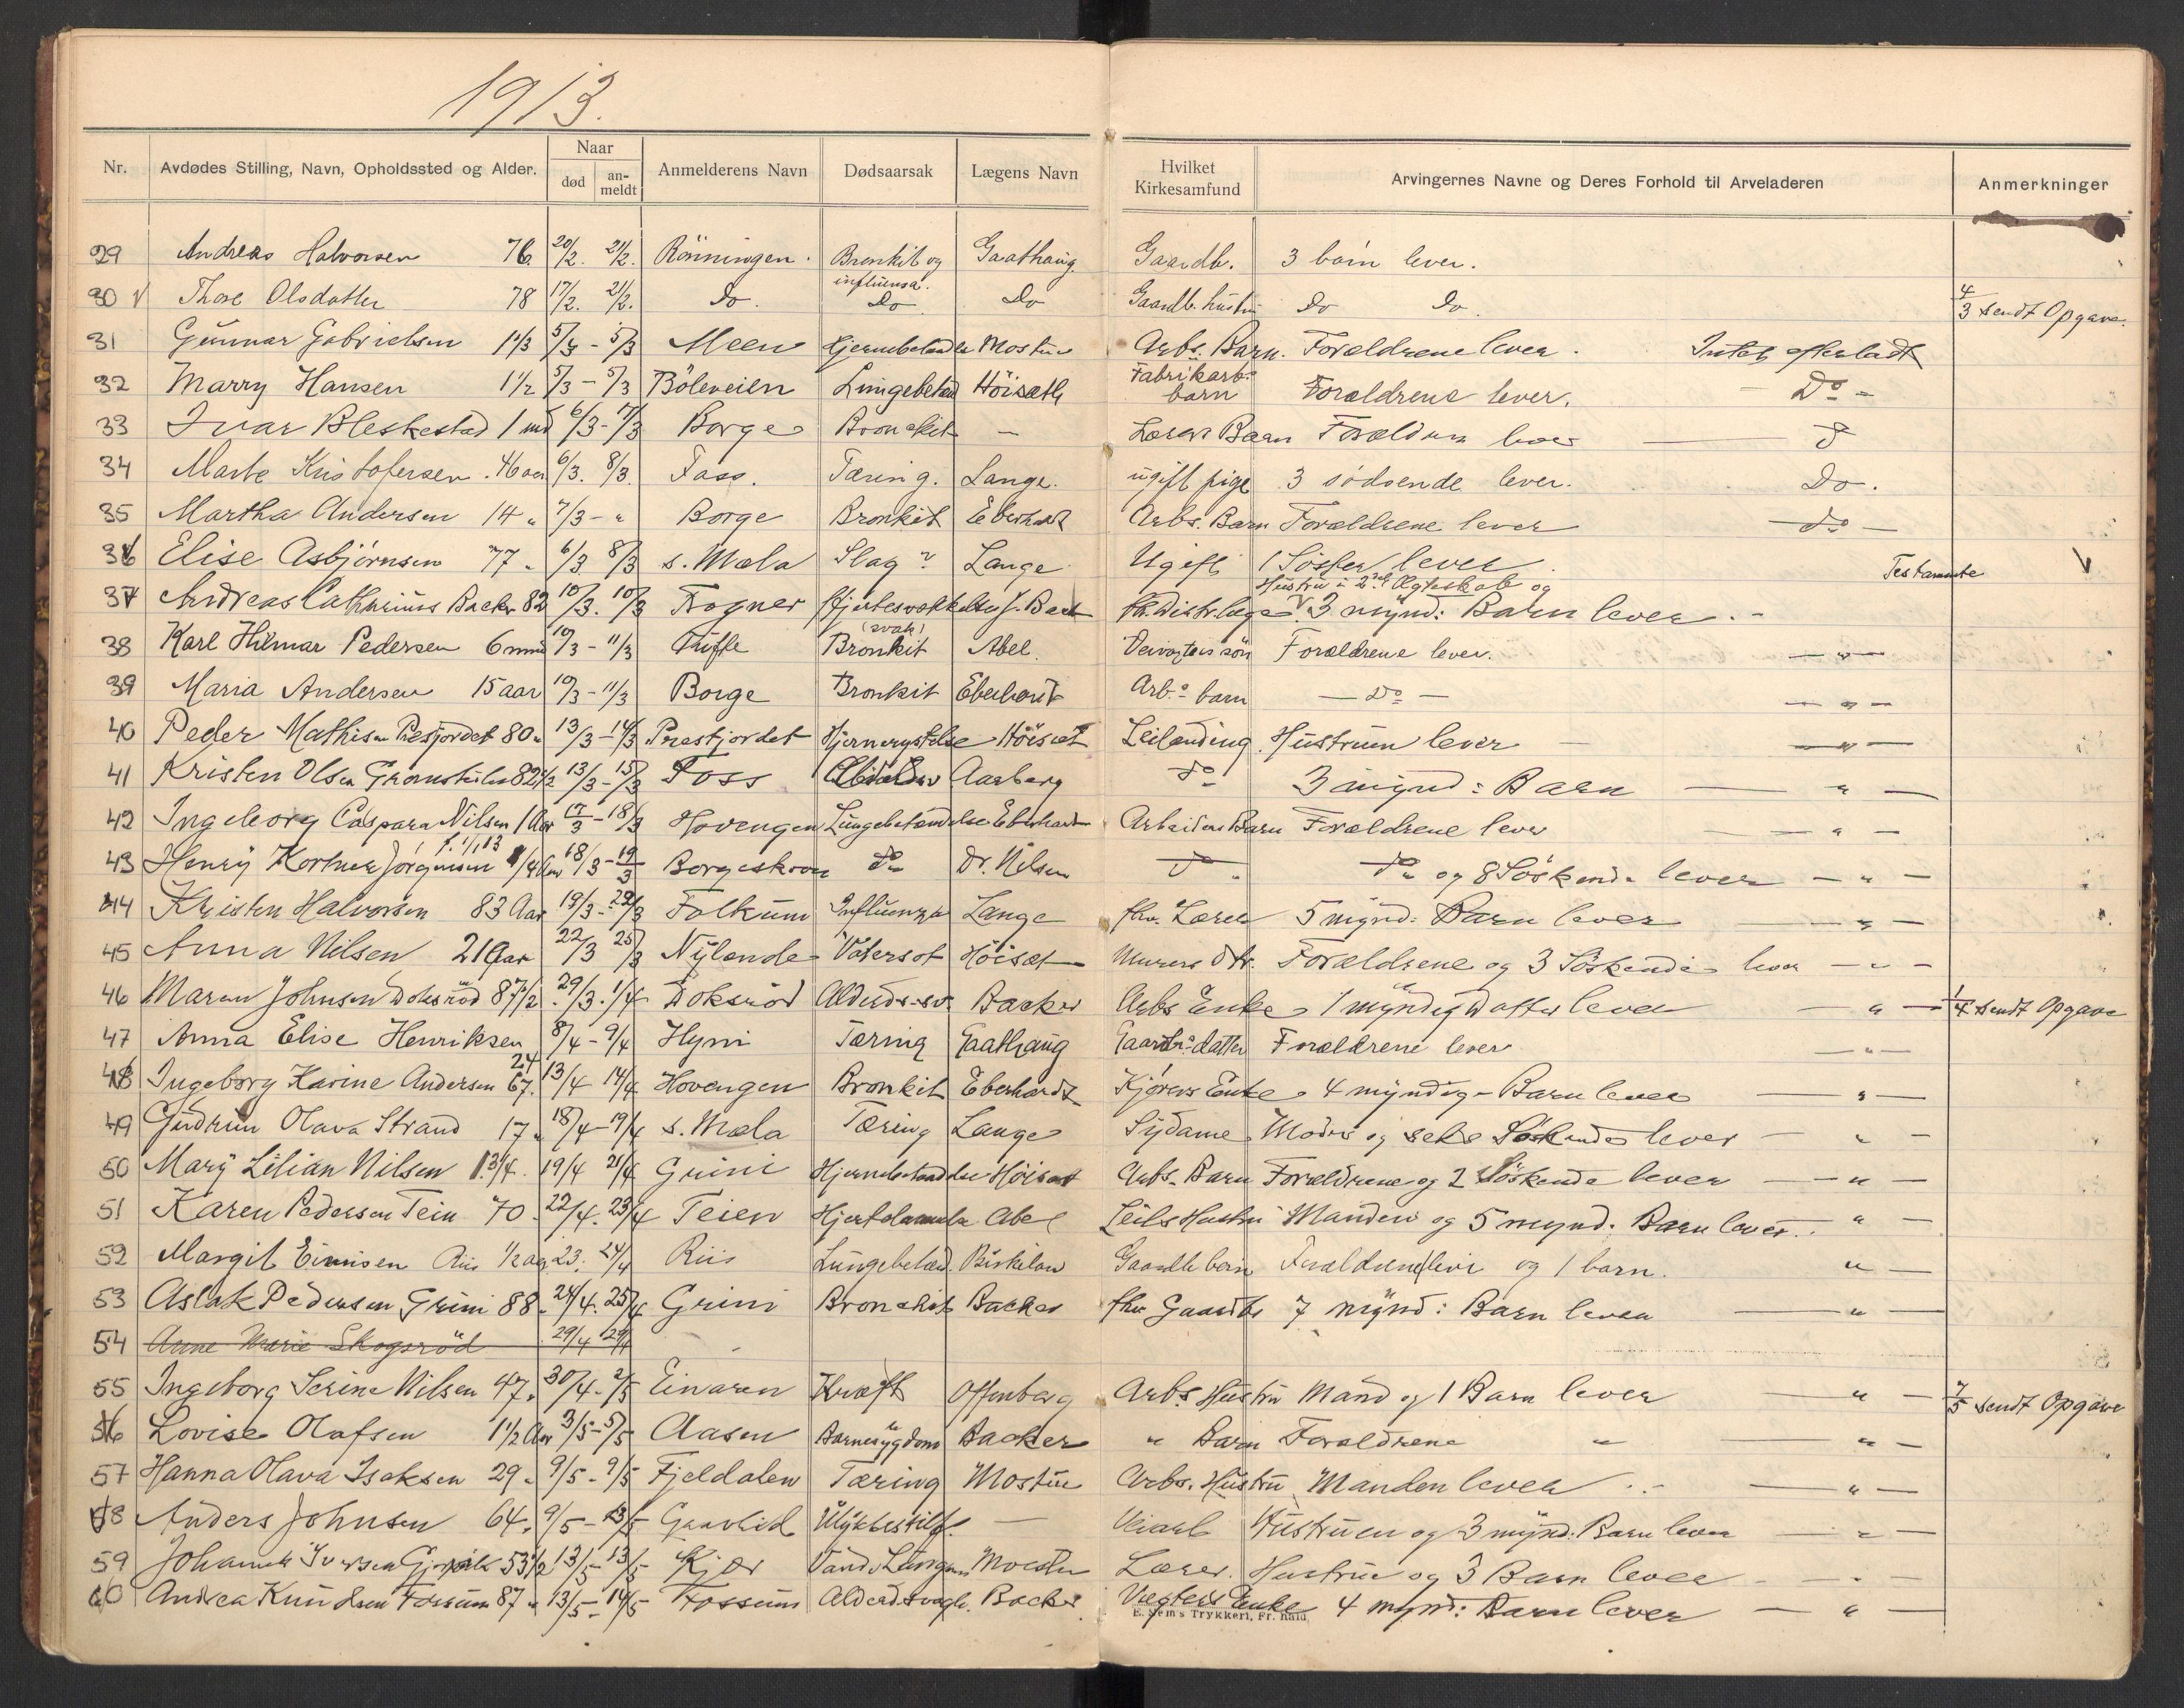 1913.
Nr. Avdødes Stilling, Navn, Opholdssted og Alder. Naar død an-meldt Anmelderens Navn Dødsaarsak Lægens Navn Hvilket Kirkesamfund Arvingernes Navne og Deres Forhold til Arveladeren Anmerkninger
29 Andreas Halvorsen 76. 20/2. 21/2. Rönningen. Bronkit og influensa. Gaathaug Gaardb. 3 börn lever.
30 V Thore Olsdatter 78 17/2. 21/2. Do. Do. Do Gaardb. hustru Do Do. 4/3 sendt Opgave.
31 Gunnar Gabrielsen 1 1/3 5/3 - 5/3 Meen Hjernebetændelse Mostue Arbs. Barn. Forældrene lever. Intet efterladt
32 Marry Hansen 1 1/2 5/3 - 5/3 Böleveien Lungebetænd Höisæth Fabrikarb. barn Forældrene lever. - Do -
33 Ivar Bleskestad 1 md 6/3 - 7/3 Borge Bronchit - Lærers Barn Forældrene lever - Do
34 Marte Kristofersen. 46 aar 6/3. 8/3. Foss. Tæring. Lange. ugift pige 3 södsende lever. Do.
35 Martha Andersen 14 " 7/3 - " Borge Bronkit Eberhardt Arbs. Barn Forældrene lever - do -
36 Elise Asbjörnsen 77 " 6/3 8/3 s. Mæla Slag ? Lange Ugift 1 Söster lever. V
37 Andreas Catharinus Backer 82 10/3. 10/3 Frogner Hjertesvækkelse J. Back fh. Distr.læge Hustru i 2det Ægteskab og 3 mynd: Barn lever. - Testamente
38 Karl Hilmar Pedersen 6 mnd 10/3 - 11/3 Tufte Bronkit (svak) Abel. Veivogters sön Forældrene lever. - " -
39 Maria Andersen 15 aar 10/3 - 11/3 Borge Bronkit Eberhardt Arb.s barn - Do - - " -
40 Peder Mathisen Præstjordet 80 " 13/3 - 14/3 Præstjordet Hjernerystelse Höisæt Leilænding Hustruen lever - " -
41 Kristen Olsen 82 1/2 13/3 - 15/3 Foss Aarberg Do 3 mynd: Barn - " -
42 Ingeborg Caspara Nilsen 1 Aar 17/3 - 18/3 Hovengen Lungebetændelse Eberhardt Arbeiders Barn Forældrene lever - " -
43 Henry Kortner Jörgensen f. 1/1 13 1/4 Aar 18/3 - 19/3 Do Dr. Nilsen Do " Do og 8 Söskende lever - " -
44 Kristen Halvorsen 83 Aar 19/3 - 22/3 Folkum Influenza Lange fhv. Lærer 5 mynd: Barn lever - " -
45 Anna Nilsen 21 Aar 22/3 25/3 Nylende Vatersot Höisæt Murers dtr. Forældrene og 3 Söskende lever - " -
46 Maren Johnsen Doksröd 87 1/2 29/3. 1/4 Doksröd Alderds.sv. Backer Arbs Enke 1 myndig Datter lever - " - 1/4 sendt Opgave
47 Anna Elise Henriksen 24 8/4 - 9/4 Hyni Tæring Gaathaug Gaardbr.s datter Forældrene lever - " -
48 Ingeborg Karine Andersen 67. 13/4 14/4 Hovengen Bronkit Eberhardt Kjörers Enke 4 myndig- Barn lever - " -
49 Gudrun Olava Strand 17 " 18/4 - 19/4 s. Mæla Tæring Lange Sydame Moder og seks Söskende lever - " -
50 Mary Lilian Nilsen 1 3/4. 19/4 21/4 Grini Hjernebetændelse Höisæt Arbs. Barn Forældrene og 2 Söskende lever - " -
51 Karen Pedersen Teien 70 - 22/4. 23/4 Teien Hjertelammelse Abel Leil.s Hustru Manden og 5 mynd. Barn lever. . " -
52 Margit Riis 1/2 aar 23. 24/4 Riis Lungebetænd. Birkeland Gaardb barn Forældrene lever og 1 barn. " -
53 Aslak Pedersen Grini 88 - 24/4. 25/4 Grini Bronchit Backer fhv Gaardbr 7 mynd: Barn lever - " -
54 Anne Marie Skogsröd 29/4 29/4 -
55 Ingeborg Serine Nilsen 47 " 30/4 - 2/5 Einaren Kræft Offenberg Arbs. Hustru Mand og 1 Barn lever - " - 7/5 sendt Opgave
56 Lovise Olafsen 1 1/2 Aar 3/5 - 5/5 Aasen Barnesygdom Backer " Barn Forældrene " - " -
57 Hanna Olava Isaksen 29 " 9/5 - 9/5 Fjeldalen Tæring Mostue Arbs. Hustru Manden lever - " -
58 Anders Johnsen 64. 9/5 - 13/5 Ulykkestilf. - Veiarb Hustruen og 3 mynd. Barn lever - " -
59 Johannes Iversen 53 1/2 13/5 - 13/5 Kjær Mostue Lærer. Hustru og 3 Barn lever - " -
60 Andrea Knudsen Fossum 87 " 13/5 - 14/5 Fossum Alderdsvagh. Backer Vægters Enke 4 mynd: Barn lever - " -
E. Sem's Trykkeri, Fr. Hald.